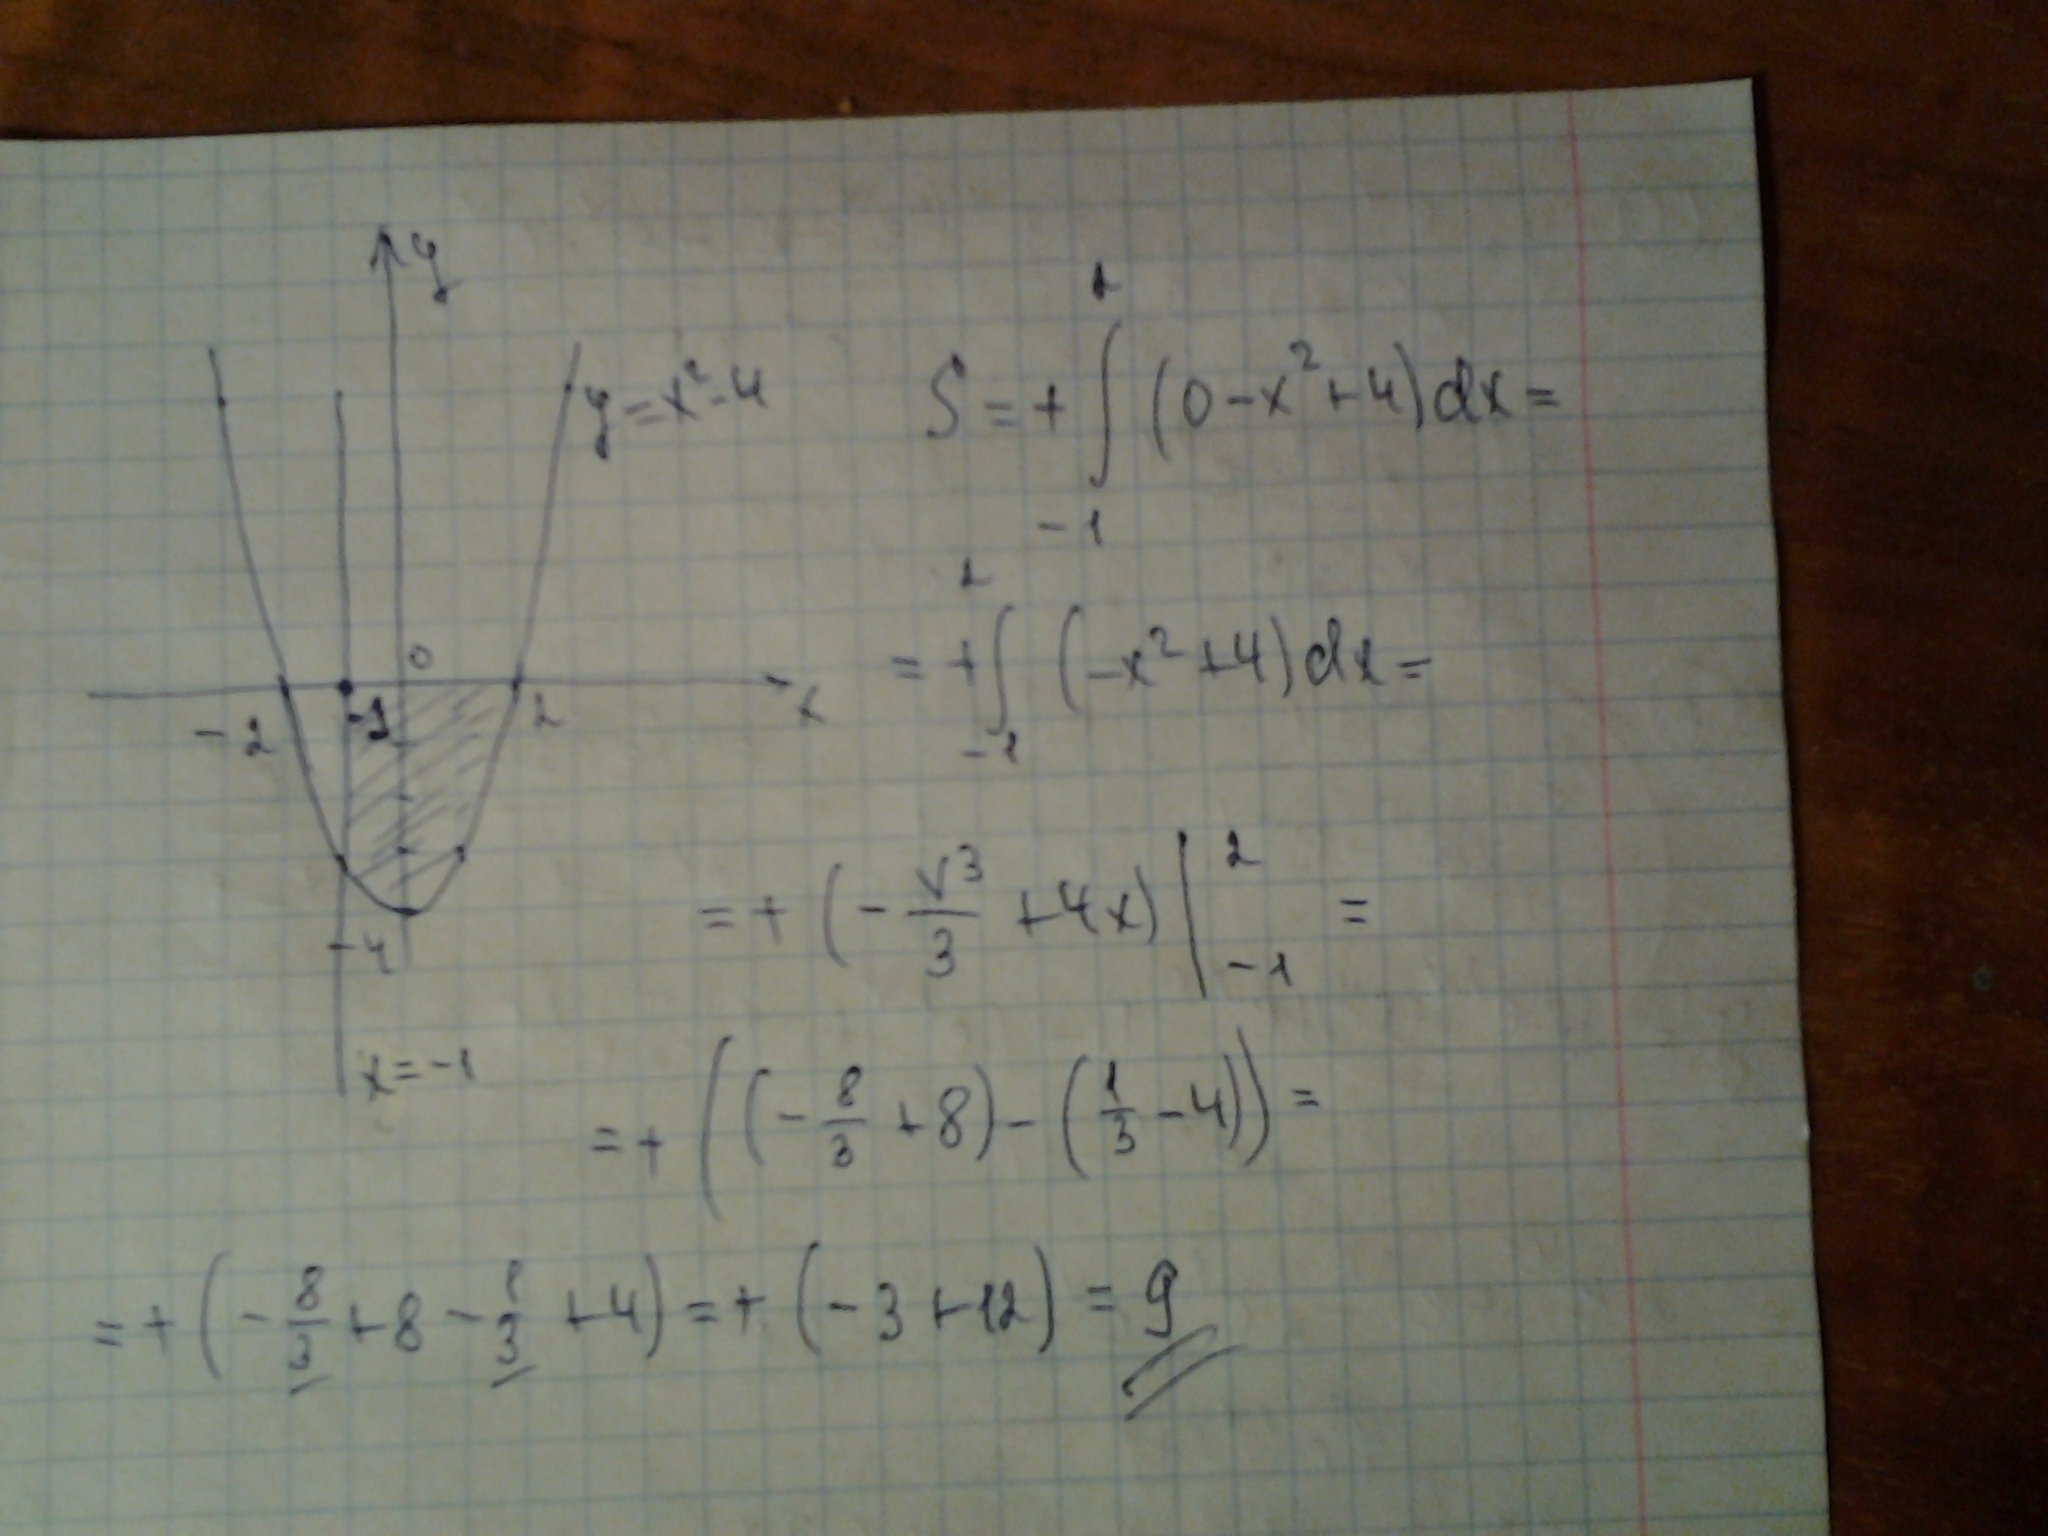 y
y = x² - 4
0
-2
-1
2
x
-4
x = -1
S = + ∫₋₁² (0 - x² + 4) dx =
= + ∫₋₁² (-x² + 4) dx =
= + (- x³/3 + 4x) |₋₁² =
= + ((- 8/3 + 8) - (1/3 - 4)) =
= + (- 8/3 + 8 - 1/3 + 4) = + (-3 + 12) = 9